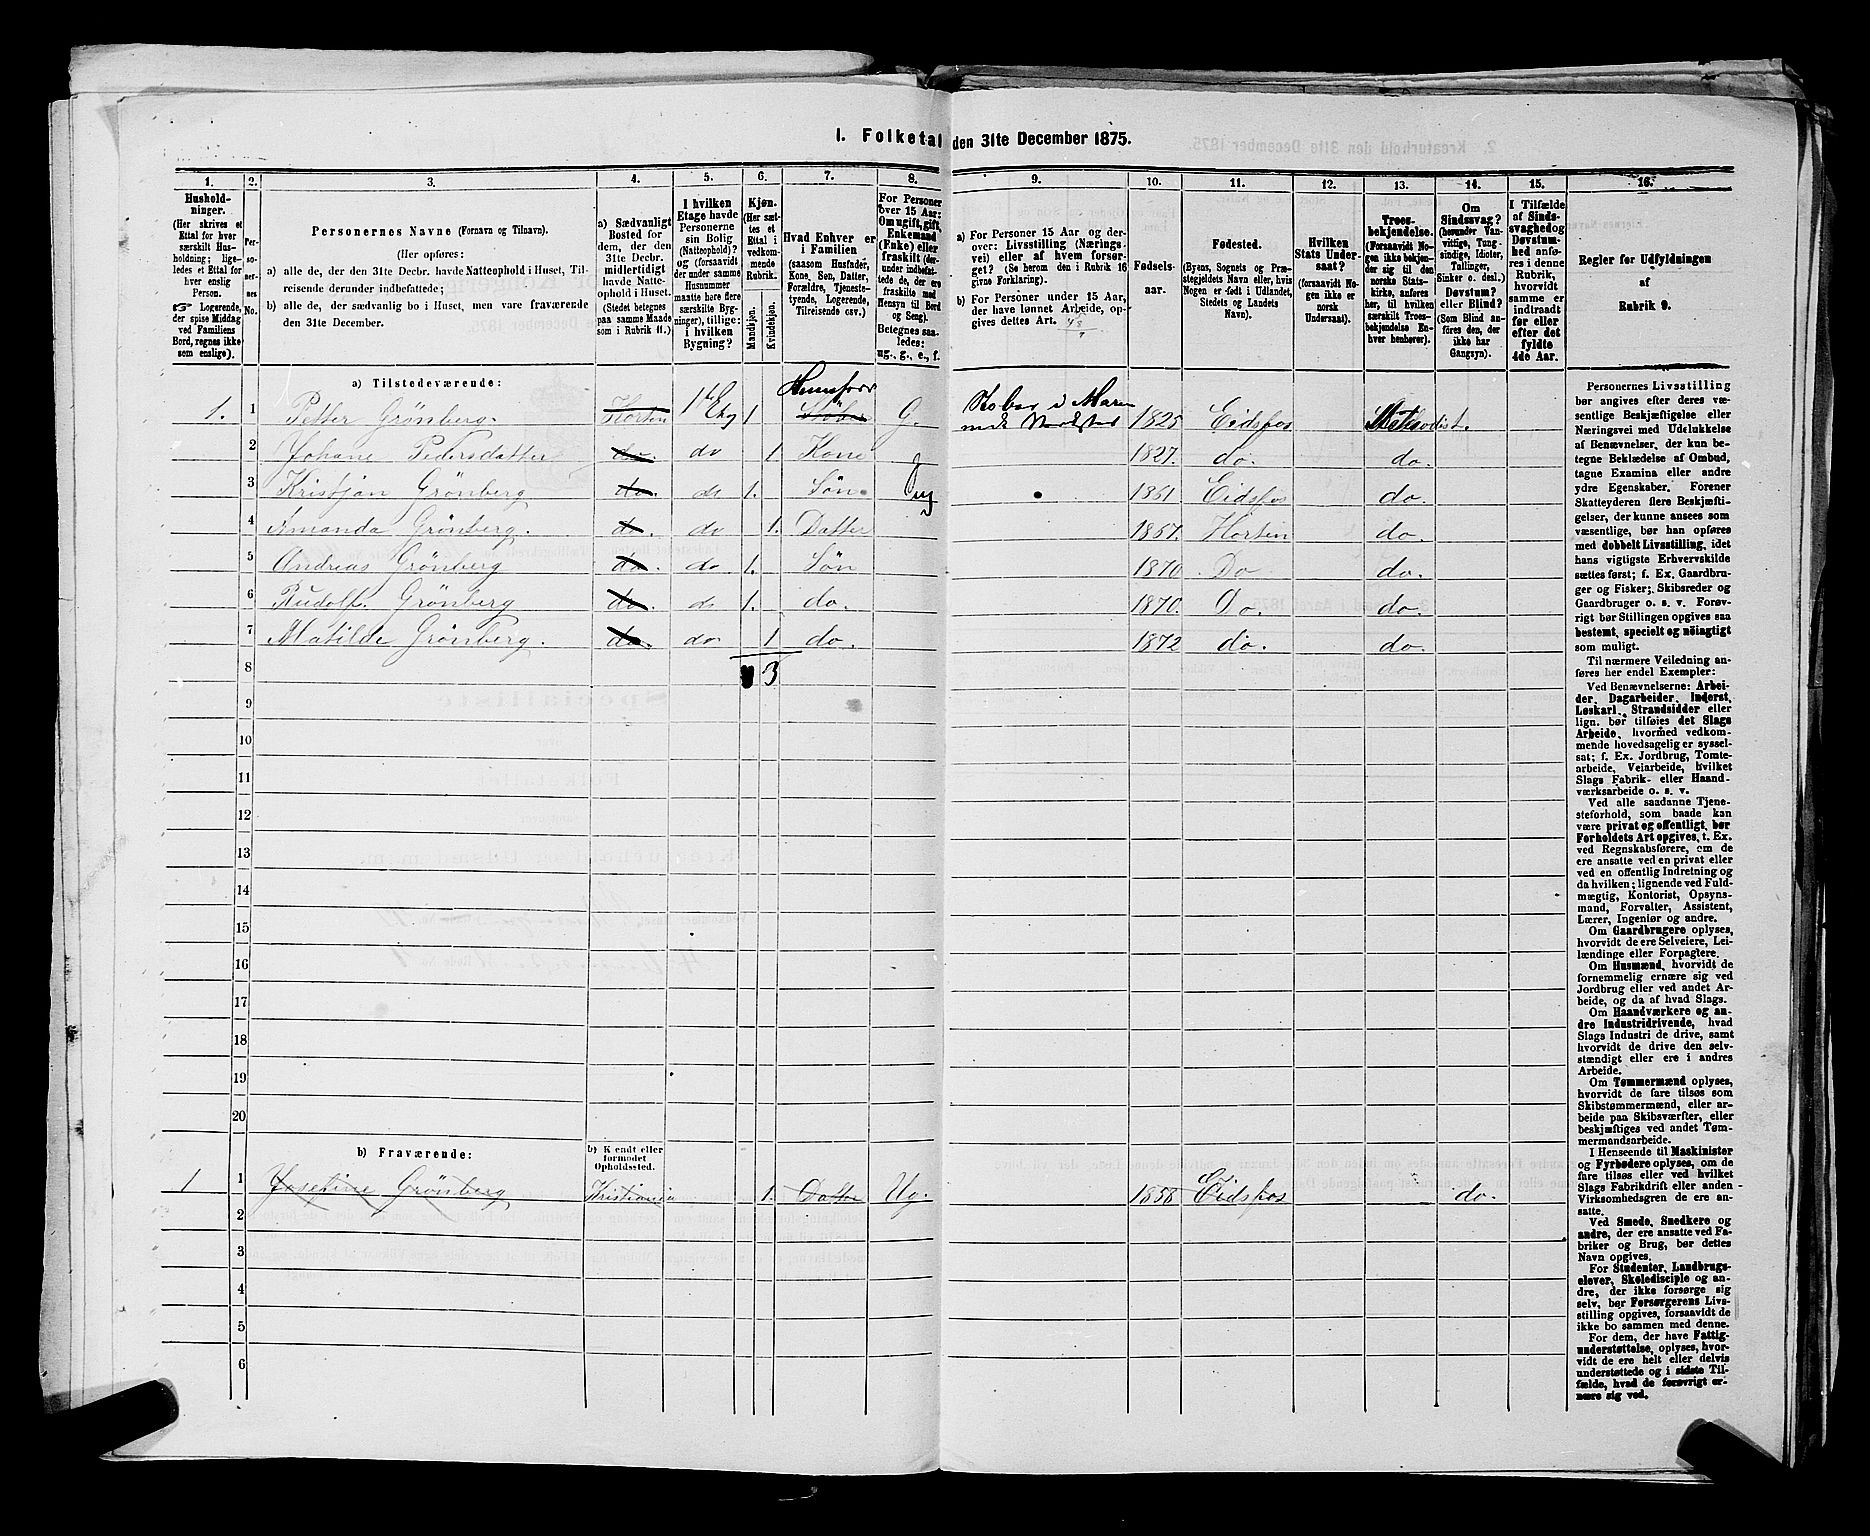 1. Folketal den 31te December 1875.
1.
Hushold-
ninger.
(Her skrives et
Ettal for hver
særskilt Hus-
holdning; lige-
ledes et Ettal for
hver enslig
Person.
☞ Logerende,
der spise Middag
ved Familiens
Bord, regnes ikke
som enslige).
2.
Per-
so-
ner-
nes
No.
3.
Personernes Navne (Fornavn og Tilnavn).
(Her opføres:
a) alle de, der den 31te Decbr. havde Natteophold i Huset, Til-
reisende derunder indbefattede;
b) alle de, der sædvanlig bo i Huset, men vare fraværende
den 31te December.
4.
a) Sædvanligt
Bosted for
dem, der den
31te Decbr.
midlertidigt
havde Natte-
ophold i Huset.
(Stedet betegnes
paa samme Maade
som i Rubrik 11.)
5.
I hvilken
Etage havde
Personerne
sin Bolig
(Natteophold)?
og (forsaavidt
der under samme
Husnummer
maatte høre flere
særskilte Byg-
ninger), tillige:
i hvilken
Bygning?
6.
Kjøn.
(Her sæt-
tes et
Ettal i
vedkom-
mende
Rubrik.
Mandkjøn.
Kvindekjøn.
7.
Hvad Enhver er
i Familien
(saasom Husfader,
Kone, Søn, Datter,
Forældre, Tjeneste-
tyende, Logerende,
Tilreisende osv.).
8.
For Personer
over 15 Aar:
Om ugift, gift,
Enkemand
(Enke) eller
fraskilt (der-
under indbefat-
tede de, der ere
fraskilte med
Hensyn til Bord
og Seng).
Betegnes saa-
ledes:
ug., g., e., f.
9.
a) For Personer 15 Aar og der-
over: Livsstilling (Nærings-
vei) eller af hvem forsør-
get? (Se herom den i Rubrik 16
givne Forklaring).
b) For Personer under 15 Aar,
der have lønnet Arbeide, op-
gives dettes Art.
10.
Fødsels-
aar.
11.
Fødested.
(Byens, Sognets og Præ-
stegjeldets Navn eller, hvis
Nogen er født i Udlandet,
Stedets og Landets
Navn).
12.
Hvilken
Stats Under-
saat?
(forsaavidt No-
gen ikke er
norsk
Undersaat).
13.
Troes-
bekjendelse.
(Forsaavidt No-
gen ikke bekjen-
der sig til den
norske Stats-
kirke, anføres
her, til hvilken
særskilt Troes-
bekjendelse En-
hver henhører).
14.
Om
Sindssvag?
(herunder Van-
vittige, Tung-
sindige, Idioter,
Tullinger,
Sinker o. desl.)
Døvstum?
eller Blind?
(Som Blind an-
føres den, der
ikke har
Gangsyn).
15.
I Tilfælde
af Sinds-
svaghed og
Døvstum-
hed anfø-
res i denne
Rubrik,
hvorvidt
samme er
indtraadt
før eller
efter det
fyldte
4de Aar.
16.
Regler for Udfyldningen
af
Rubrik 9.
a) Tilstedeværende:
1. 1 Petter Grönberg. Horten 1 Etg 1 G. 1825 Eidsfos Methodist.
2 Johane Pedersdatter do. do 1 Kone 1827. do. do.
3 Kristjan Grönberg do. do 1. Søn ug 1861 Eidsfos do.
4 Amanda Grönberg. do. do 1. Datter 1867. Horten do.
5 Andreas Grönberg do. do 1. Søn 1870 Do do.
6 Rudolf. Grönberg do. do 1. do. 1870. Do. do.
7 Matilde Grönberg. do. do 1 do. 1872 do. do.
8 3
9
10
11
12
13
14
15
16
17
18
19
20
b) Fraværende:
b) Kjendt eller
formodet
Opholdssted.
1 1 Josefine Grönberg Kristiania 1. Datter Ug. 1858 Eidsfos do.
2
3
4
5
6
Personernes Livsstilling
bør angives efter deres væ-
sentlige Beskjæftigelse eller
Næringsvei med Udelukkelse
af Benævnelser, der kun be-
tegne Beklædelse af Ombud,
tagne Examina eller andre
ydre Egenskaber. Forener
Skatteyderen flere Beskjæfti-
gelser, der kunne ansees som
væsentlige, bør han opføres
med dobbelt Livsstilling, idet
hans vigtigste Erhvervskilde
sættes først; f. Ex. Gaardbru-
ger og Fisker; Skibsreder og
Gaardbruger o. s. v. Forøv-
rigt bør Stillingen opgives saa
bestemt, specielt og nöiagtigt
som muligt.
Til nærmere Veiledning an-
føres her endel Exempler:
Ved Benævnelserne: Arbei-
der, Dagarbeider, Inderst,
Løskarl, Strandsidder eller
lign. bør tilføies det Slags
Arbeide, hvormed vedkom-
mende hovedsagelig er syssel-
sat; f. Ex. Jordbrug, Tomte-
arbeide, Veiarbeide, hvilket
Slags Fabrik- eller Haand-
værksarbeide o. s. v.
Ved alle saadanne Tjene-
steforhold, som baade kan
være privat og offentligt, bør
Forholdets Art opgives, t. Ex.
ved Regnskabsførere, om de
ere ansatte ved en privat eller
ved en offentlig Indretning og
da hvilken; lignende ved Fuld-
mægtig, Kontorist, Opsyns-
mand, Forvalter, Assistent,
Lærer, Ingeniør og andre.
Om Gaardbrugere oplyses,
hvorvidt de ere Selveiere, Lei-
lændinge eller Forpagtere.
Om Husmænd, hvorvidt de
fornemmelig ernære sig ved
Jordbrug eller ved andet Ar-
beide, og da af hvad Slags.
Om Haandværkere og an-
dre Industridrivende, hvad
Slags Industri de drive, samt
hvorvidt de drive den selv-
stændigt eller ere i andres
Arbeide.
Om Tømmermænd oplyses,
hvorvidt de fare tilsøs som
Skibstømmermænd, eller ar-
beide paa Skibsværfter, eller
beskjæftiges ved andet Tøm-
mermandsarbeide.
I Henseende til Maskinister
og Fyrbødere oplyses, om de
fare tilsøs eller ved hvilket
Slags Fabrikdrift eller anden
Virksomhedsgren de ere an-
satte.
Ved Smede, Snedkere og
andre, der ere ansatte ved Fa-
briker og Brug, bør dettes
Navn opgives.
For Studenter, Landbrugs-
elever, Skoledisciple og an-
dre, der ikke forsørge sig
selv, bør Forsørgerens Livs-
stilling opgives, forsaavidt de
ikke bo sammen med denne.
For dem, der have Fattig-
understøttelse, oplyses, hvor-
vidt de ere helt eller delvis
understøttede og i sidste Til-
fælde, hvad de forøvrigt er-
nære sig ved.